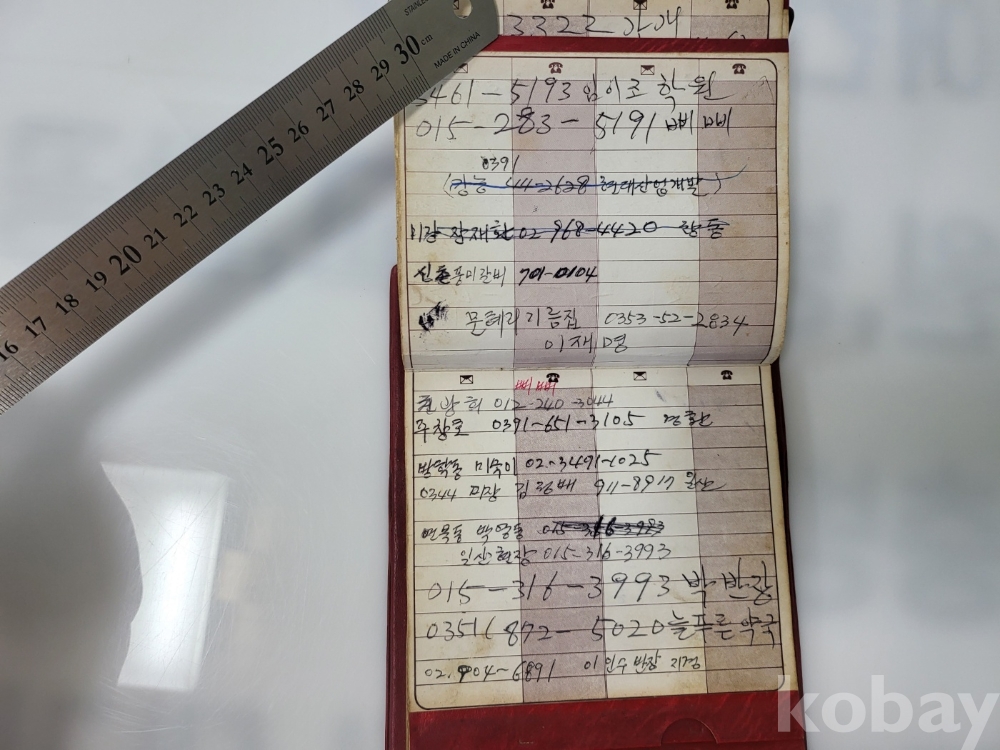 STAINLESS
MADE IN CHINA
30 cm
29
28
27
26
25
24
23
22
21
20
19
18
17
16
3322
3461-5193 임이조 학원
015-283-5191 삐삐
0391
(강능 44-2628 현대산업개발)
미장 장재환 02 968-4420 창동
풍미갈비 701-0104
문혜리기름집 0353-52-2834
이재명
삐삐
012-240-3044
주창호 0391-651-3105
방학동 미숙이 02-3491-1025
0344 미장 911-8917 일산
면목동 박영동 015-316-3983
일산현장 015-316-3993
015-316-3993 박반장
0351 872-5020 늘푸른약국
02.904-6891 이인수 반장
kobay